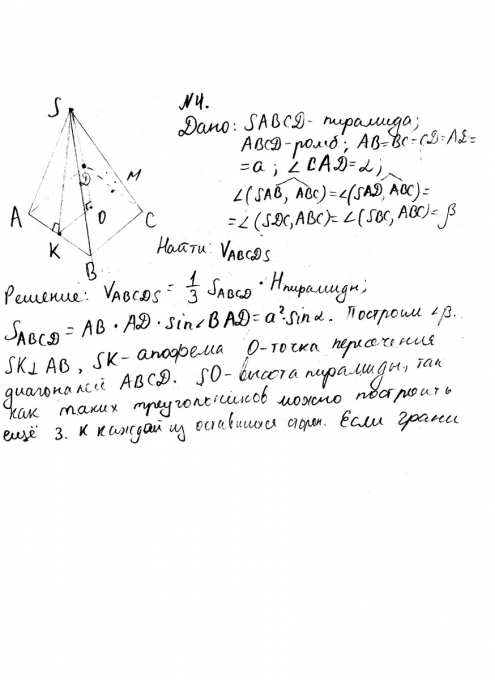 S
M
D
A
O
C
K
B
№4.
Дано: SABCD - пирамида;
ABCD - ромб; AB=BC=CD=AD=
=a; ∠BAD=α;
∠(SAB, ABC)=∠(SAD, ABC)=
=∠(SDC, ABC)=∠(SBC, ABC)=β
Найти: VABCDS
Решение: VABCDS = 1/3 SABCD · Hпирамиды;
SABCD = AB · AD · sin∠BAD = a² sin α. Построим ∠β.
SK⊥AB, SK - апофема O-точка пересечения
диагоналей ABCD. SO - высота пирамиды, так
как таких треугольников можно построить
ещё 3. к каждой из оставшихся сторон. Если грани